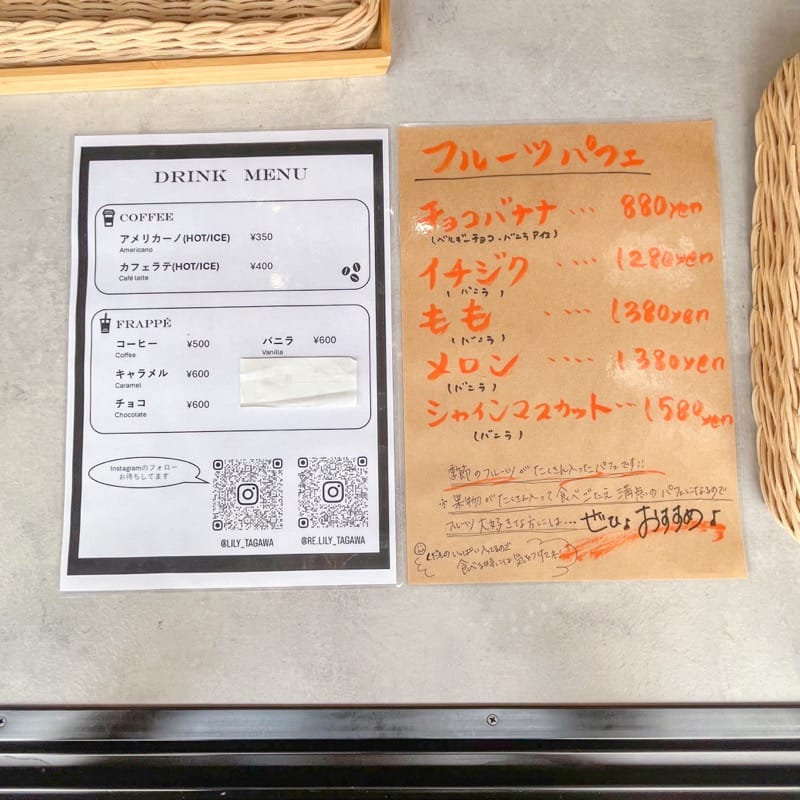 DRINK MENU
COFFEE
アメリカーノ(HOT/ICE) ¥350
Americano
カフェラテ(HOT/ICE) ¥400
Café latte
FRAPPÉ
コーヒー ¥500
Coffee
キャラメル ¥600
Caramel
チョコ ¥600
Chocolate
バニラ ¥600
Vanilla
Instagramのフォロー
お待ちしてます
@LILY_TAGAWA
@RE.LILY_TAGAWA
フルーツパフェ
チョコバナナ ・・・ 880yen
(ベルギーチョコ・バニラアイス)
イチジク ・・・・ 1280yen
(バニラ)
もも ・・・・ 1380yen
(バニラ)
メロン ・・・・ 1380yen
(バニラ)
シャインマスカット・・・1580yen
(バニラ)
季節のフルーツがたくさん入ったパフェです!!
※果物がたくさん入って食べごたえ満点のパフェになるので
フルーツ大好きな方には...ぜひおすすめ♪
くだものいっぱい入ってるので
食べる時には気をつけて